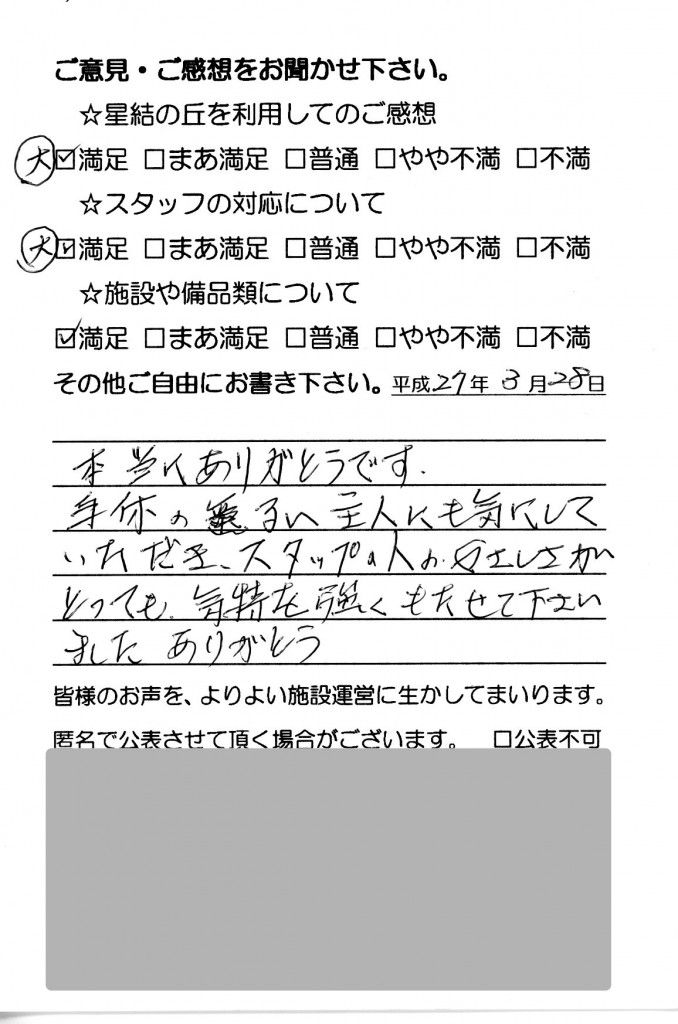 ご意見・ご感想をお聞かせ下さい。
☆星結の丘を利用してのご感想
大 ☑満足 □まあ満足 □普通 □やや不満 □不満
☆スタッフの対応について
大 ☑満足 □まあ満足 □普通 □やや不満 □不満
☆施設や備品類について
☑満足 □まあ満足 □普通 □やや不満 □不満
その他ご自由にお書き下さい。平成27年 3月28日
本当にありがとうです.
身体の悪るい主人にも気にして
いただき、スタップの人の やさしさが
とっても 気持を強くもたせて下さい
ました ありがとう
皆様のお声を、よりよい施設運営に生かしてまいります。
匿名で公表させて頂く場合がございます。 □公表不可